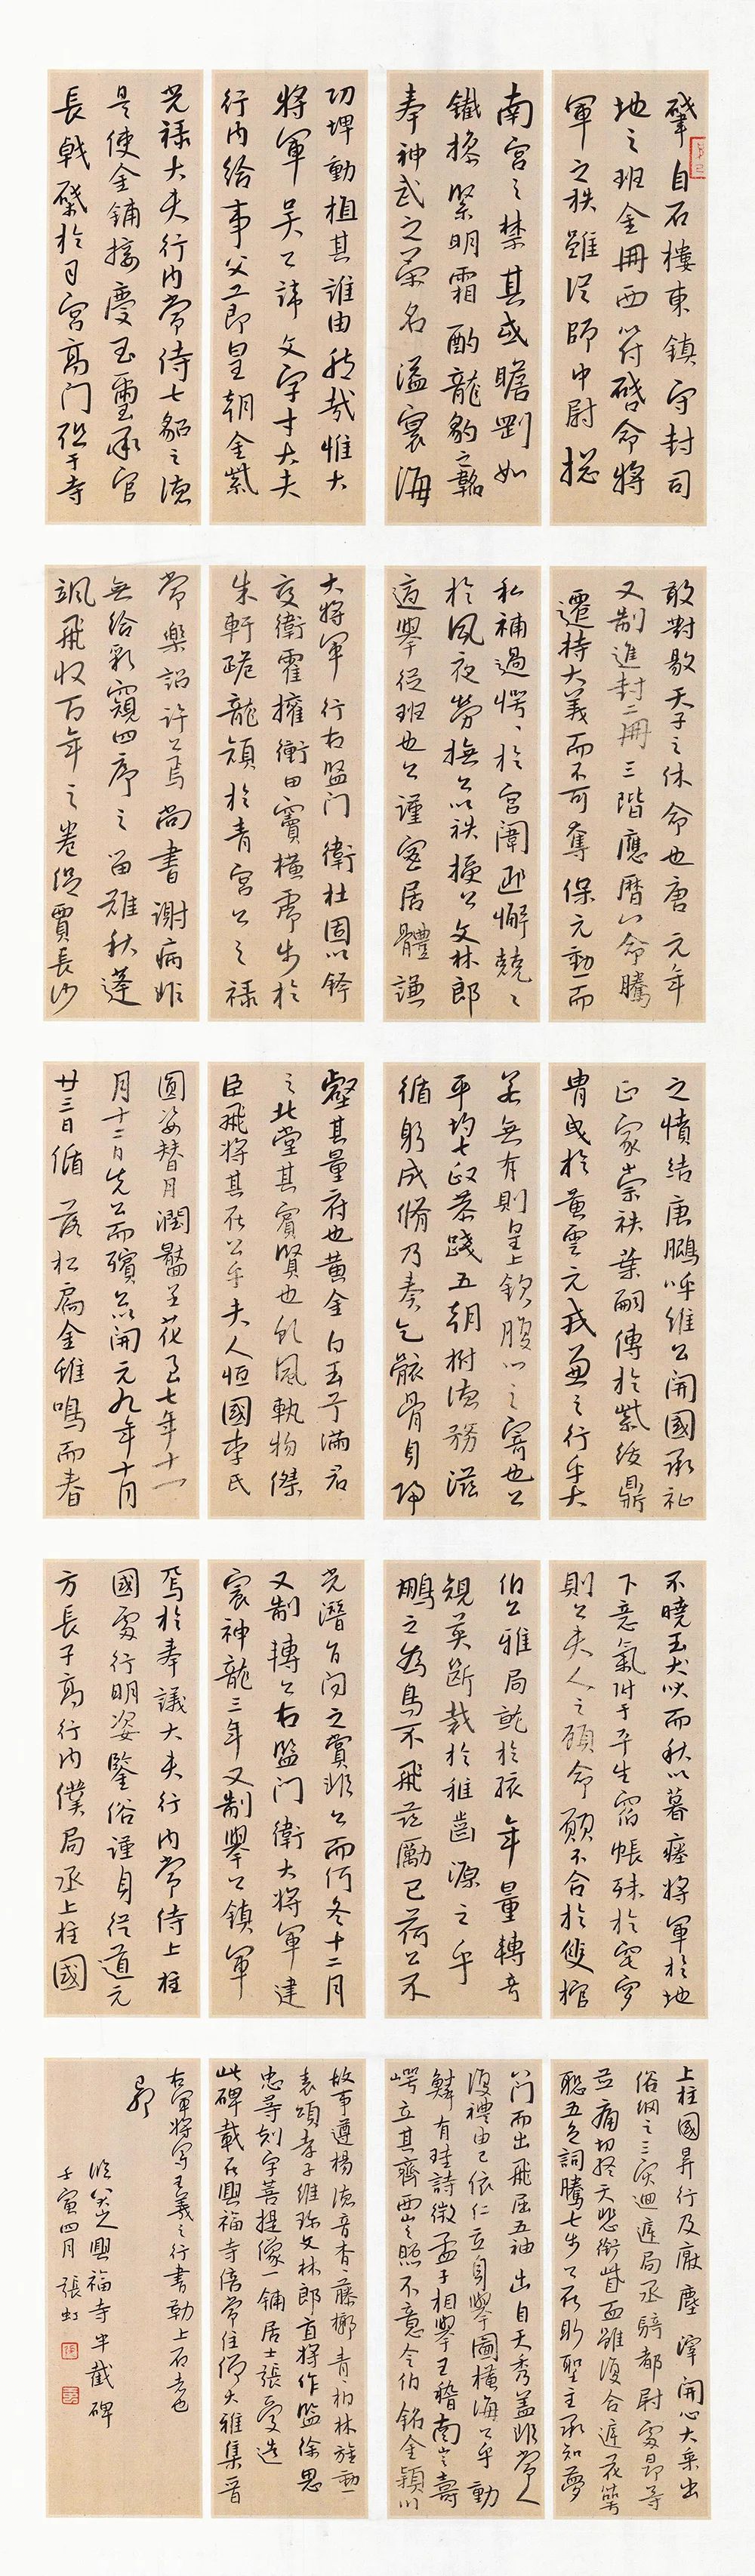 肇自石樓東鎮守封司
地之班金冊西符啓命將
軍之秩雖從師中尉揔
南宮之禁其或瞻䚯如
鐵操緊明霜酌龍豹之韜
奉神武之荣名溢寰海
功埤動植其誰由然哉惟大
將軍吴公諱文字才大夫
行内給事父節皇朝金紫
光禄大夫行内常侍七貂之德
是使金鋪接慶玉璽承官
長戟棨於司宫高門祖于寺
敢對敭天子之休命也唐元年
又制進封二冊三階應曆以命騰
遷持大義而不可奪保元勳而
私補過愕愕於宫闈匪懈兢兢
於夙夜勞撫公以祑授公文林郎
適舉從班也公謹密居體謙
大將軍行右監門衛杜固以鉾
交衛霍擁衡田竇橫虎步於
朱軒跪龍顏於青宫公之禄
常樂詔許公焉尚書謝病非
無給彩窺四序之留難秋蓬
颯飛收百年之卷促賈長沙
之憤結唐鵬呼維公開國承祉
正家崇祑葉嗣傳於紫绶鼎
胄或於黃雲元戎兼之行乎大
若無有則皇上欽腹心之寄也公
平均七政恭踐五朝樹德務滋
循躬成脩乃奏乞骸骨自歸
壑其量府也黃金白玉于滿君
之北堂其賓賢也飲風執物傑
臣飛將其在公乎夫人恒國李氏
圆姿替月潤臉呈花至七年十一
月十二日先公而殯以開元九年十月
廿三日循落松扃金雞鳴而春
不曉玉犬吠而秋以暮痊將軍於地
下意氣附于平生宿帳殊於窀穸
則公夫人之顧命願不合於雙棺
伯公雅局詭於孩年量轉奇
規英斷裁於稚齒源之乎
鵬之為鳥不飛茲勵已荷公不
光潛旨问之賞非公而何冬十二月
又制轉公右監门衛大將軍建
宸神龍三年又制舉公鎮軍
焉於奉議大夫行内常侍上柱
國處行明姿鑒俗謹身從道元
方長子高行内僕局丞上柱國
上柱國昇行及廒塵滓開心大乘出
俗綱之三災迴遽局丞騎都尉處昂等
茲痛切終天悲銜眥面雖復合遲花筆
聪五色詞騰七步公在形聖主承知夢
以門而出飛屈五袖出自天秀蓋非常人
復禮由己依仁立身舉圖橫海公乎動
鱗有珪詩徵孟子相舉王稽南宫壽
崿立其齊西山之照不意令伯銘金穎川
故事遵楊德音杳藤郁青柏林旌勳
表頌孝子維珎文林郎直將作監徐思
忠等刻字菩提像一鋪居士張愛造
此碑載在興福寺陪常住師大雅集晉
右軍將军王羲之行書勒上石者也
臨八大之興福寺半截碑
壬寅四月張虹